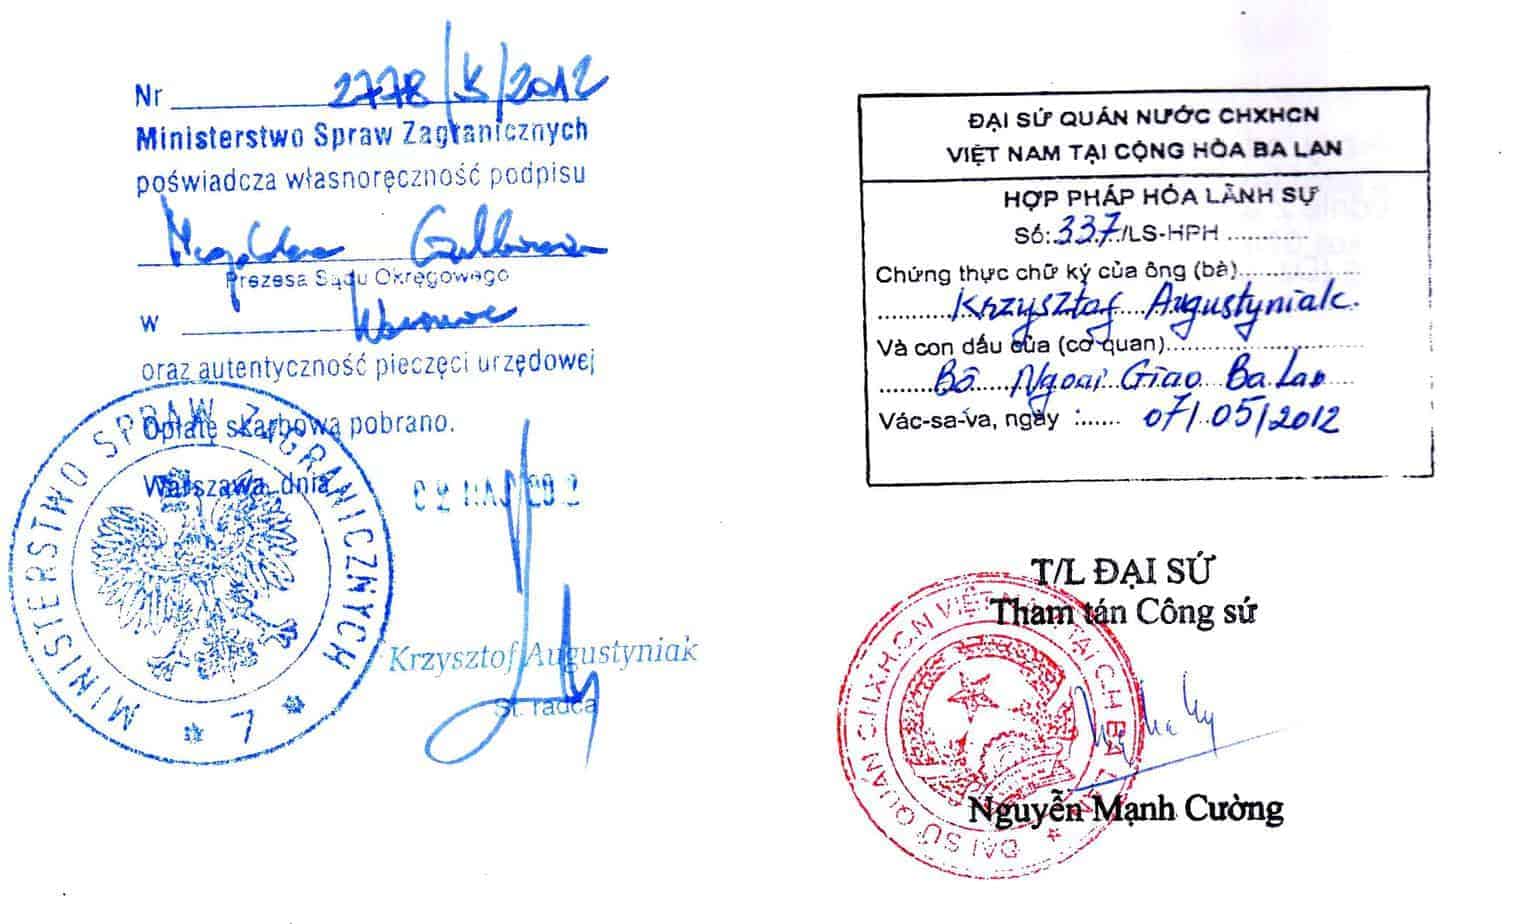 Nr 2778/K/2012
Ministerstwo Spraw Zagranicznych
poświadcza własnoręczność podpisu
Magdalena
Prezesa Sądu Okręgowego
w Warszawie
oraz autentyczność pieczęci urzędowej
Opłatę skarbową pobrano.
Warszawa, dnia 02 MAJ 2012
MINISTERSTWO SPRAW ZAGRANICZNYCH
* 7 *
Krzysztof Augustyniak
St. radca
ĐẠI SỨ QUÁN NƯỚC CHXHCN
VIỆT NAM TẠI CỘNG HÒA BA LAN
HỢP PHÁP HÓA LÃNH SỰ
Số: 337/LS-HPH
Chứng thực chữ ký của ông (bà)
Krzysztof Augustyniak.
Và con dấu của (cơ quan)
Bô Ngoại Giao Ba Lan
Vác-sa-va, ngày : 07/05/2012
T/L ĐẠI SỨ
Tham tán Công sứ
ĐẠI SỨ QUÁN CHXHCN VIỆT NAM TẠI CH BA LAN
Nguyễn Mạnh Cường